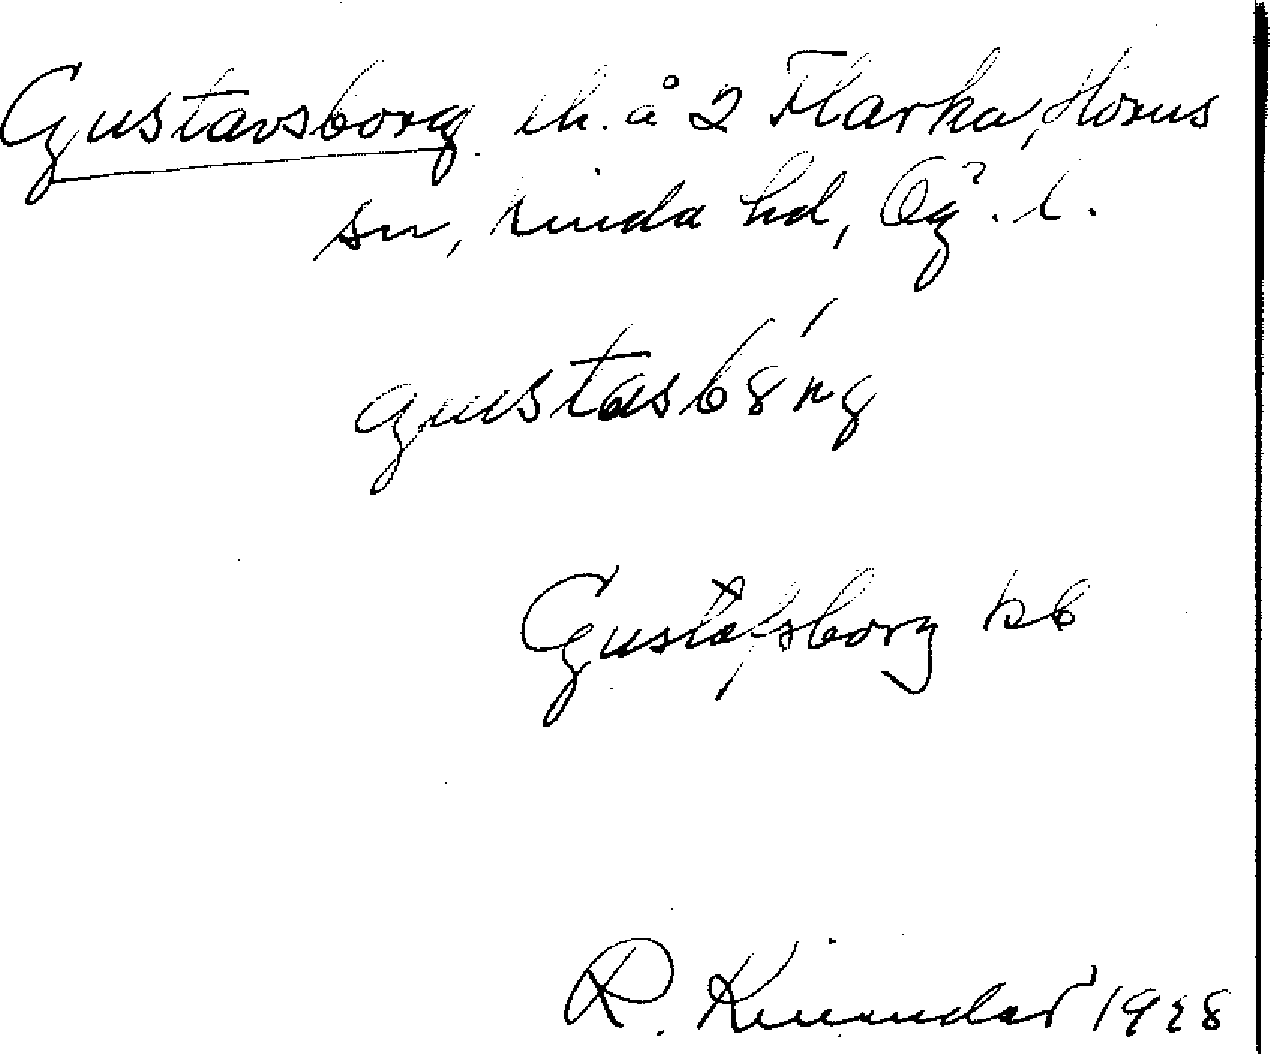 Gustavsborg lh. å 2 Flarka, Horns
sn, Kinda hd, Ög. l.
gustasbórg
Gustafsborg kb
R. Kinander 1928